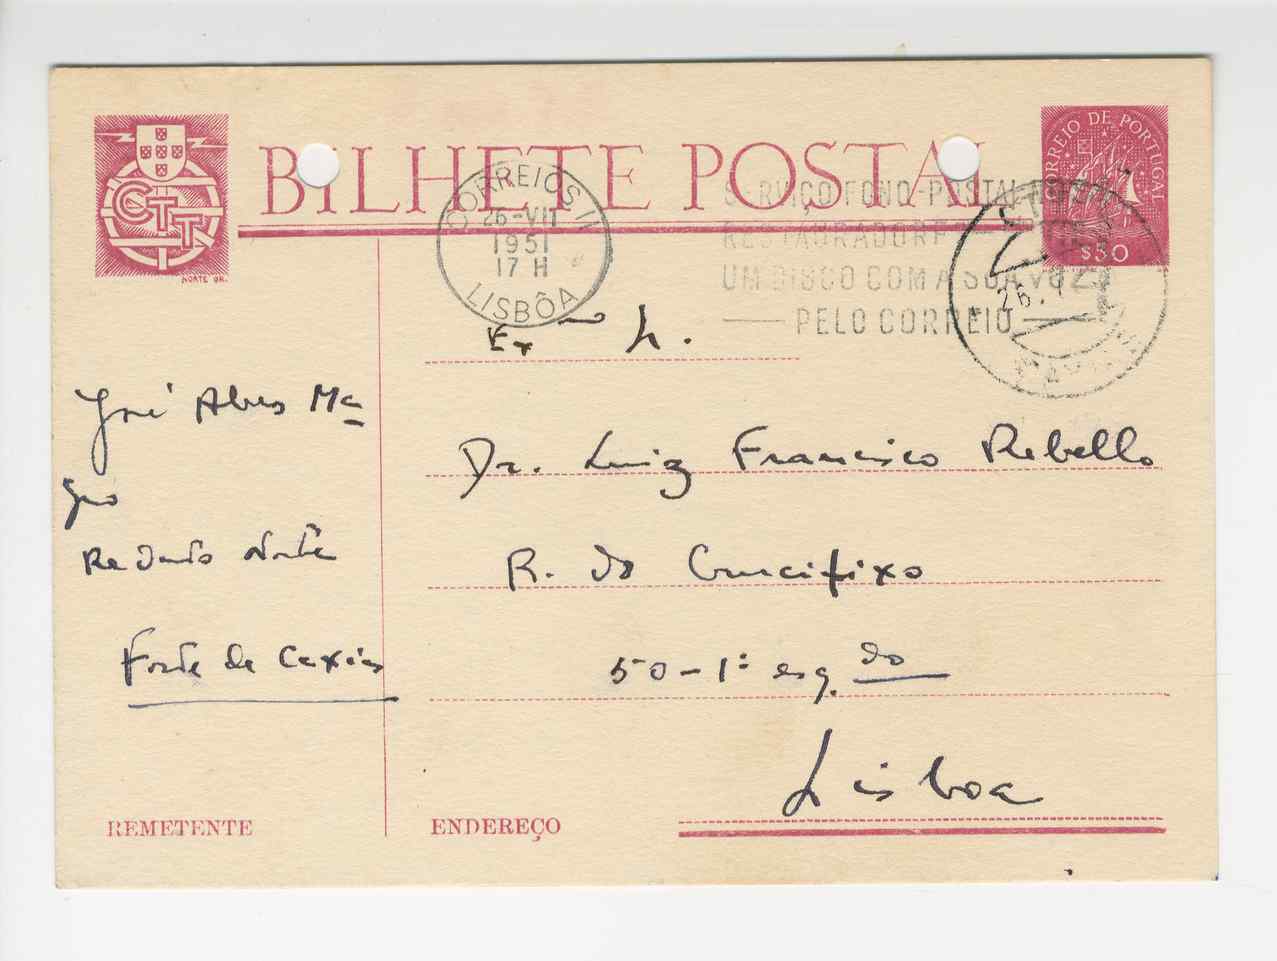 BILHETE POSTAL
CTT
NORTE GR.
CORREIO DE PORTUGAL
$50
CORREIOS II
26-VII
1951
17 H
LISBÔA
SERVIÇO FONO-POSTAL
RESTAURADORE
UM DISCO COM A SUA VOZ
PELO CORREIO
26.
Exmo Sr.
José Alves Ma
Dr. Luiz Francisco Rebello
R. do Crucifixo
Reduto Norte
Forte de Caxias
50-1º esq.do
Lisboa
REMETENTE
ENDEREÇO